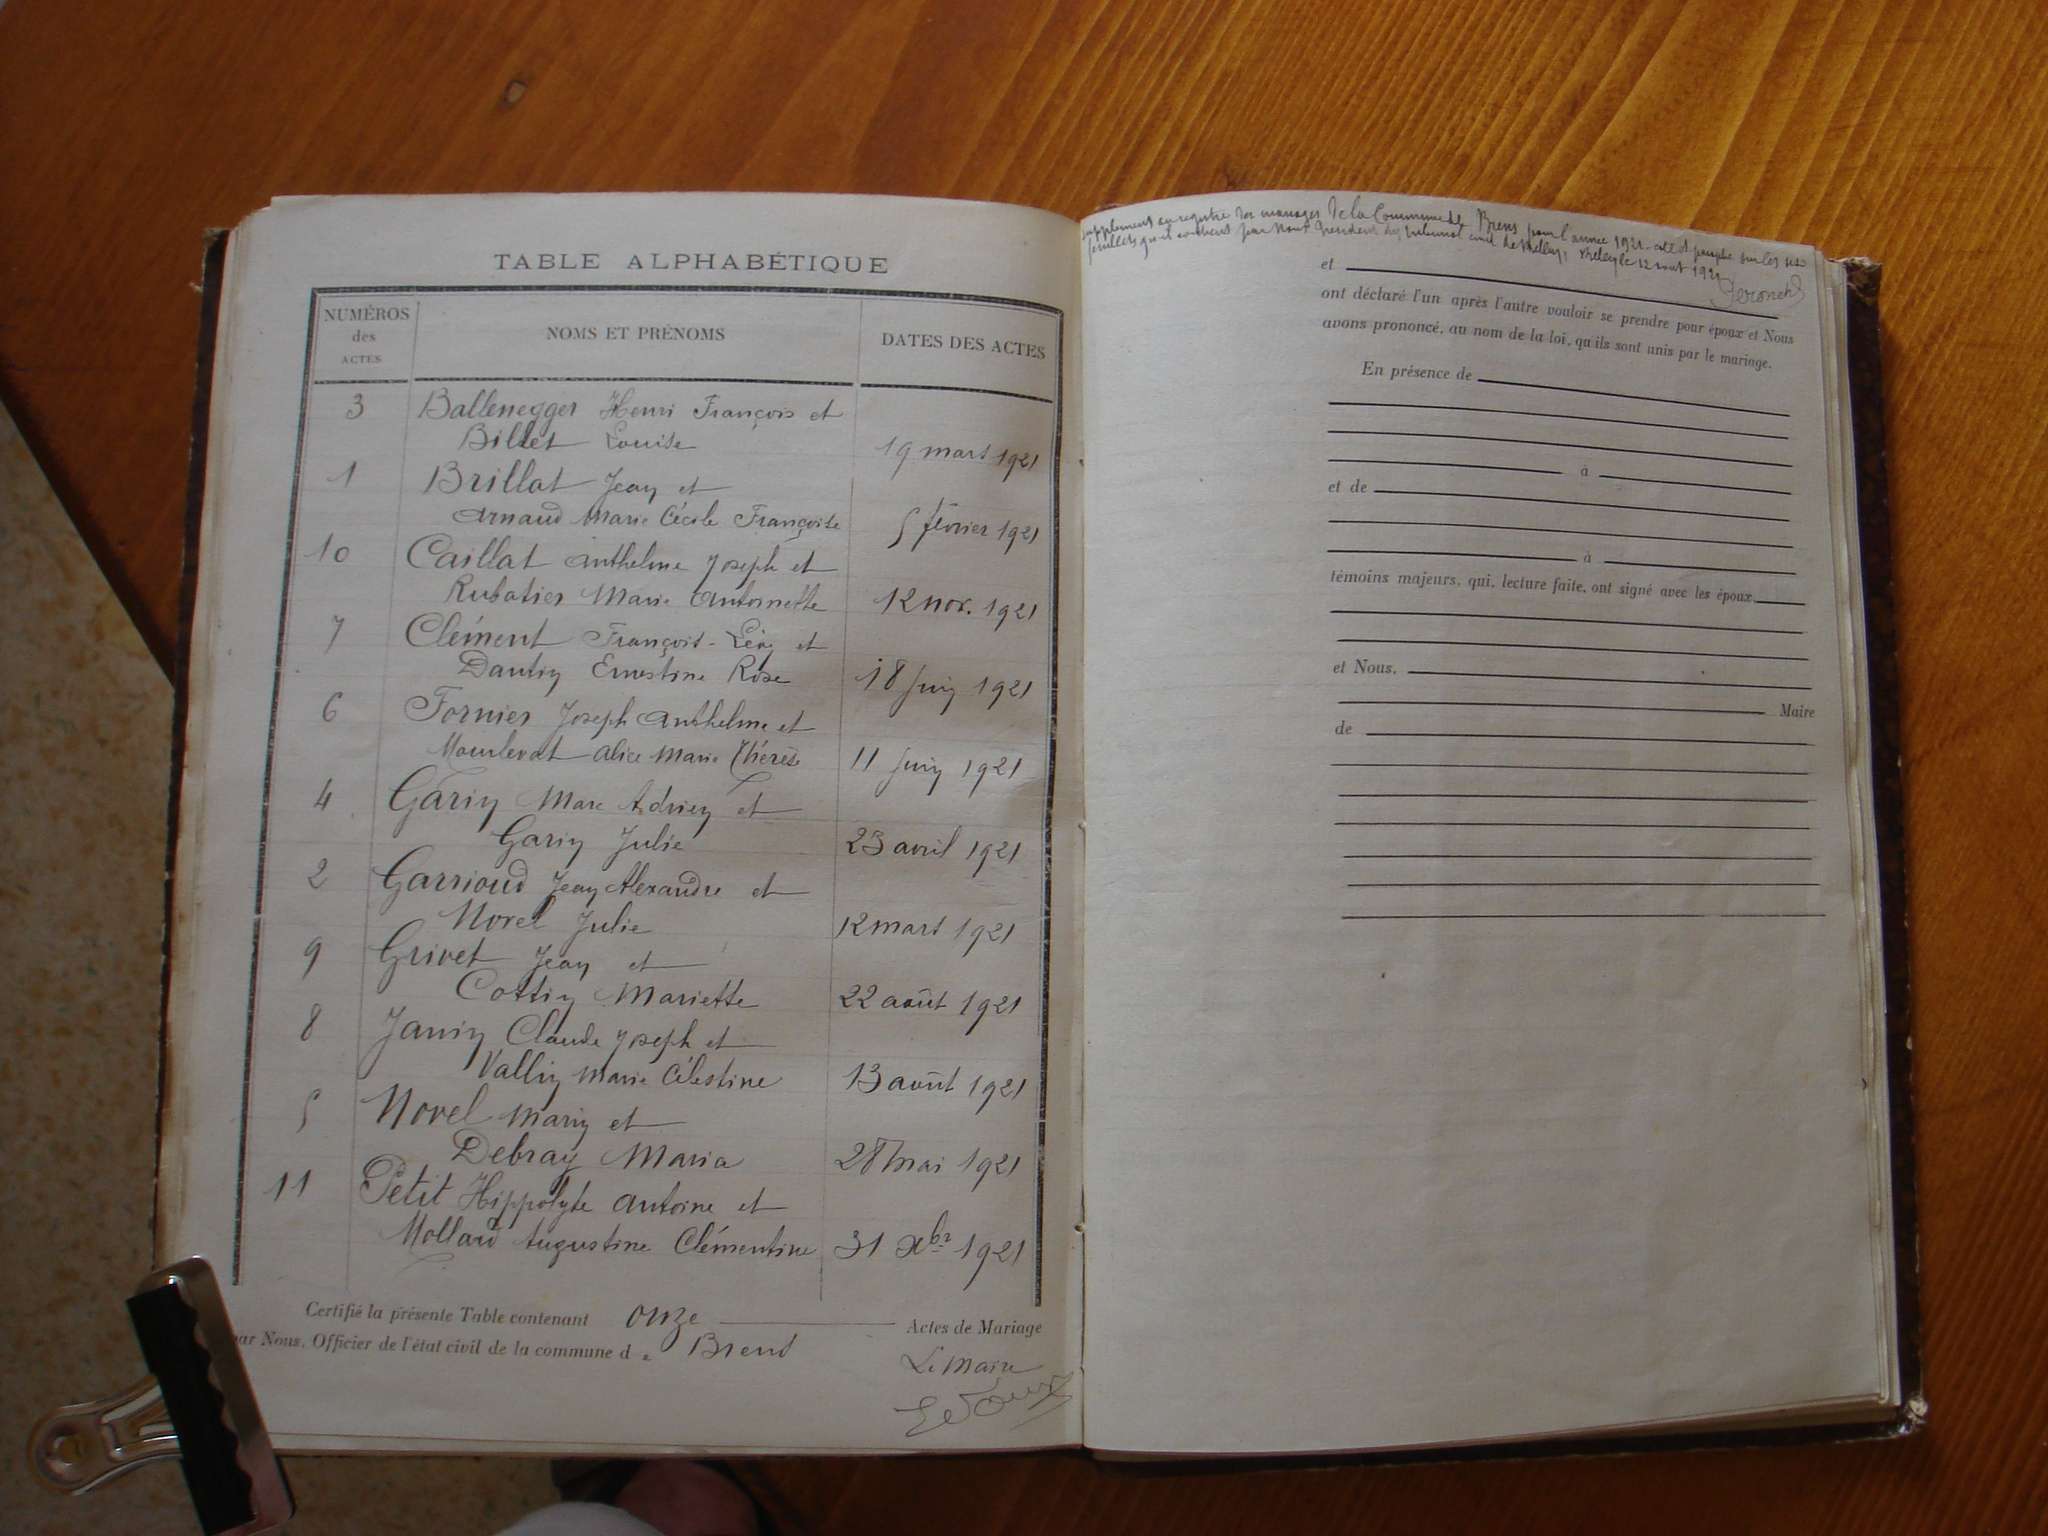 TABLE ALPHABÉTIQUE
NUMÉROS des ACTES
NOMS ET PRÉNOMS
DATES DES ACTES
3 Ballenegger Henri François et
Billet Louise 19 mars 1921
1 Brillat Jean et
Arnaud Marie Cécile Françoise 5 février 1921
10 Caillat Anthelme Joseph et
Rubatier Marie Antoinette 12 nov. 1921
7 Clément François-Léon et
Dantin Ernestine Rose 18 Juin 1921
6 Fornier Joseph Anthelme et
Mourlevat Alice Marie Thérèse 11 Juin 1921
4 Garin Marc Adrien et
Garin Julie 23 avril 1921
2 Garrioud Jean Alexandre et
Morel Julie 12 mars 1921
9 Grivet Jean et
Cottin Mariette 22 août 1921
8 Janin Claude Joseph et
Vallin Marie Célestine 13 août 1921
5 Novel Marin et
Debray Maria 28 mai 1921
11 Petit Hippolyte Antoine et
Mollard Augustine Clémentine 31 Xbre 1921
Certifié la présente Table contenant onze Actes de Mariage
par Nous, Officier de l'état civil de la commune de Brens
Le Maire
supplément au registre des mariages de la Commune de Brens pour l'année 1921 - coté et paraphé sur les
feuillets qu'il contient par Nous Président du tribunal civil de Belley, Belley le 12 août 1921
et
ont déclaré l'un après l'autre vouloir se prendre pour époux et Nous
avons prononcé, au nom de la loi, qu'ils sont unis par le mariage.
En présence de
à
et de
à
témoins majeurs, qui, lecture faite, ont signé avec les époux
et Nous,
Maire
de